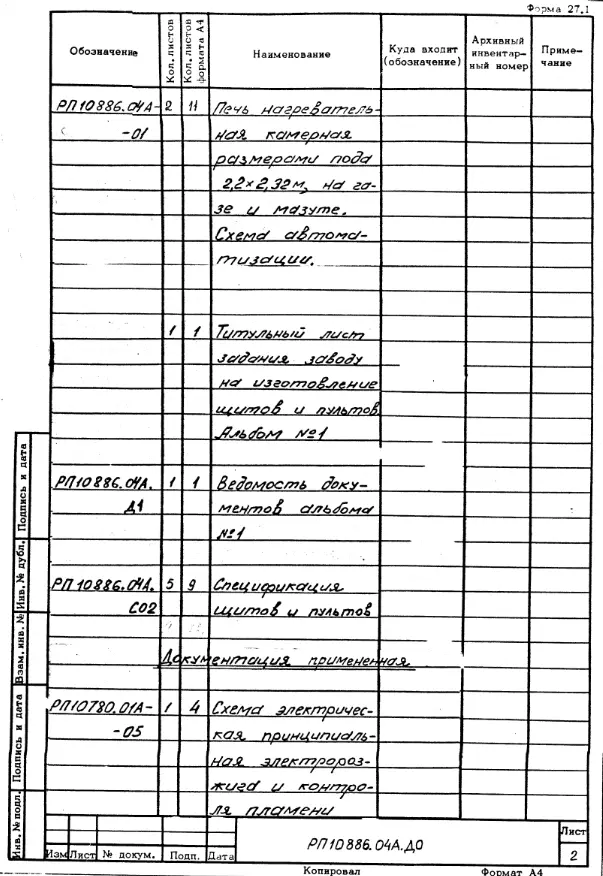 Форма 27.1
Обозначение
Кол. листов
Кол. листов формата А4
Наименование
Куда входит
(обозначение)
Архивный
инвентар-
ный номер
Приме-
чание
РП10886.04А- 2 11 Печь нагреватель-
-01 ная камерная
размерами пода
2,2×2,32м, на га-
зе и мазуте.
Схема автома-
тизации.
1 1 Титульный лист
задания заводу
на изготовление
щитов и пультов
Альбом №1
РП10886.04А. 1 1 Ведомость доку-
Д1 ментов альбома
№1
РП10886.04А. 5 9 Спецификация
СО2 щитов и пультов
Документация примененная
РП10780.01А- 1 4 Схема электричес-
-05 кая принципиаль-
ная электророз-
жига и контро-
ля пламени
Подпись и дата
Инв. № дубл.
Взам. инв. №
Подпись и дата
Инв. № подл.
Изм Лист № докум. Подп. Дата
РП10886.04А.Д0
Лист
2
Копировал Формат А4